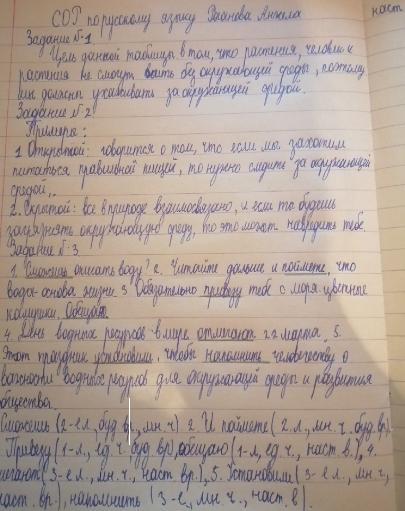 СОР по русскому языку Анжела
наст
Задание №1
Цель данной таблицы в том, что растения, человек и
растения не смогут жить без окружающей среды, поэтому
мы должны ухаживать за окружающей средой.
Задание №2
Примеры:
1 Открытой: говорится о том, что если мы захотим
питаться правильной пищей, то нужно следить за окружающей
средой,.
2. Скрытой: все в природе взаимосвязано, и если то будешь
загрязнять окружающую среду, то это может навредить тебе.
Задание №3
1. Сможешь описать воду? 2. Читайте дальше и поймете, что
вода-основа жизни 3 Обязательно привезу тебе с моря цветные
камушки. Обещаю
4. День водных ресурсов в мире отмечают 22 марта. 5.
Этот праздник установили, чтобы напомнить человечеству о
важности водных ресурсов для окружающей среды и развития
общества.
Сможешь (2-е л., буд вр., мн.ч) 2. И поймете (2 л., мн.ч. буд.вр).
Привезу (1-л., ед.ч. буд вр), обещаю (1-л, ед.ч., наст.в.), 4.
(3-е л., мн.ч., наст.вр.), 5. Установили (3-е л., мн.ч,
наст.вр.), напомнить (3-е, мн.ч., наст.в).